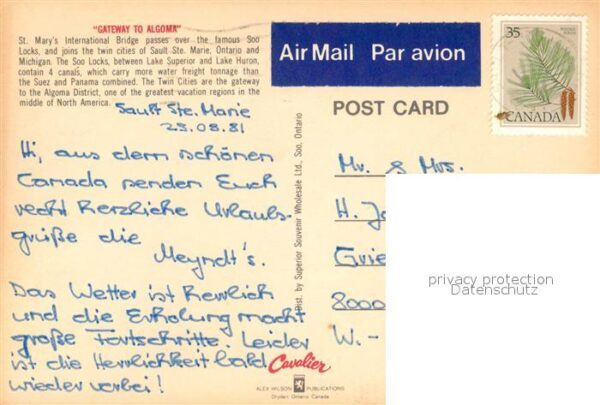 "GATEWAY TO ALGOMA"
St. Mary's International Bridge passes over the famous Soo
Locks, and joins the twin cities of Sault Ste. Marie, Ontario and
Michigan. The Soo Locks, between Lake Superior and Lake Huron,
contain 4 canals, which carry more water freight tonnage than
the Suez and Panama combined. The Twin Cities are the gateway
to the Algoma District, one of the greatest vacation regions in the
middle of North America.
Sault Ste. Marie
23.08.81
Hi, aus dem schönen
Canada senden Euch
recht herzliche Urlaubs-
grüße die
Meyndt's.
Das Wetter ist herrlich
und die Erholung macht
große Fortschritte. Leider
ist die Herrlichkeit bald
wieder vorbei!
Cavalier
ALEX WILSON PUBLICATIONS
Dryden Ontario Canada
Dist. by Superior Souvenir Wholesale Ltd., Soo, Ontario
Air Mail Par avion
POST CARD
35
CANADA
Mr. & Mrs.
H. Ja
Grie
8000
W.-
privacy protection
Datenschutz